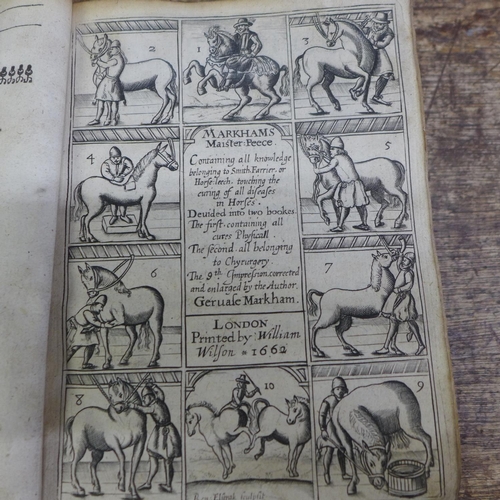 2
1
3
MARKHAMS
Maister-Peece.
Containing all knowledge
belonging to Smith, Farrier, or
Horse-leech, touching the
curing of all diseases
in Horses.
Deuided into two bookes.
The first containing all
cures Physicall.
The second all belonging
to Chyrurgery.
The 9th Impression, corrected
and enlarged by the Author.
Geruase Markham.
4
5
6
7
LONDON
Printed by William
Wilson 1662
8
10
9
sculpsit